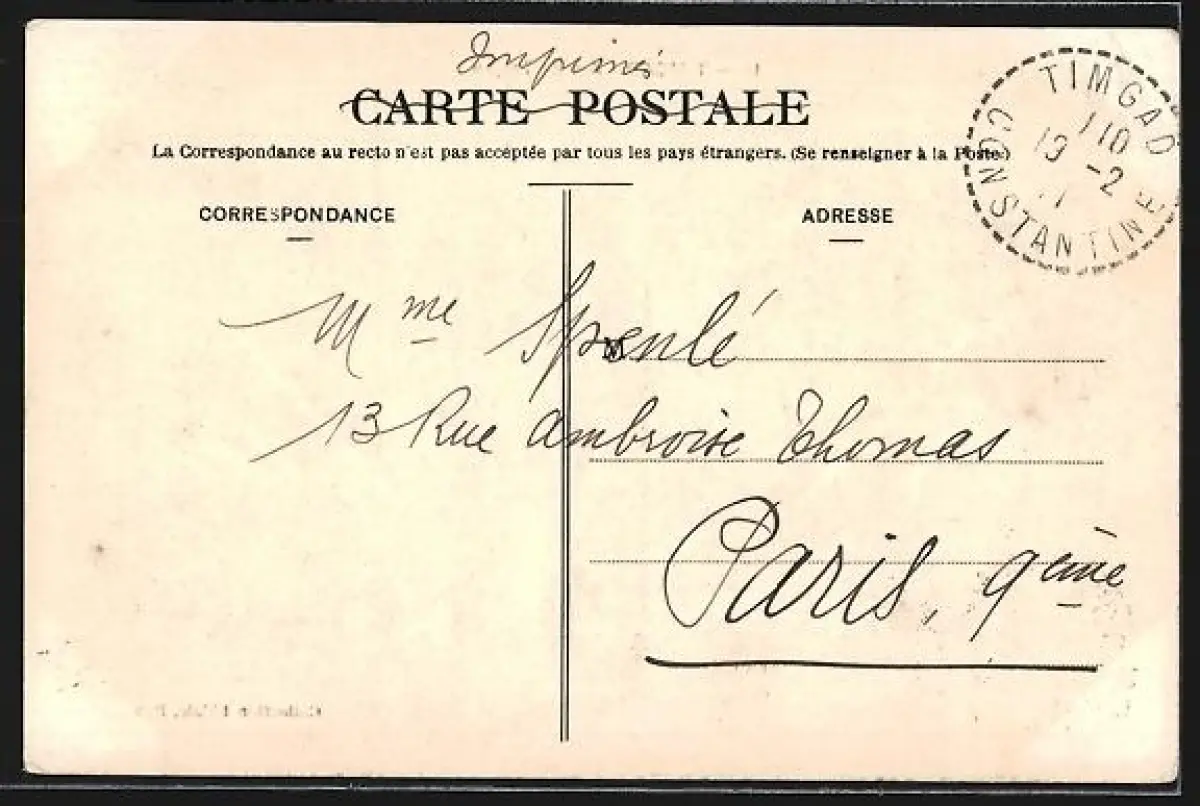 Imprimé
CARTE POSTALE
La Correspondance au recto n'est pas acceptée par tous les pays étrangers. (Se renseigner à la Poste.)
TIMGAD
10
19 -2
CONSTANTINE
CORRESPONDANCE
ADRESSE
Mme Spenlé
13 Rue Ambroise Thomas
Paris, 9ème